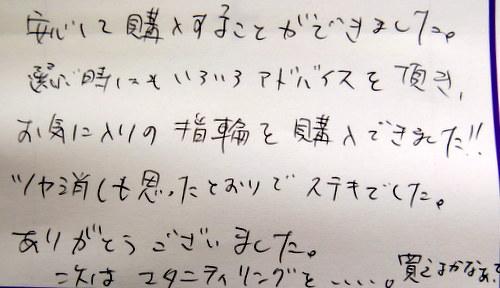 安心して購入することができました。
選ぶ時にもいろいろアドバイスを頂き、
お気に入りの指輪を購入できました!!
ツヤ消しも思ったとおりでステキでした。
ありがとうございました。
次はエタニティリングを、、、、。買えるかなぁ?